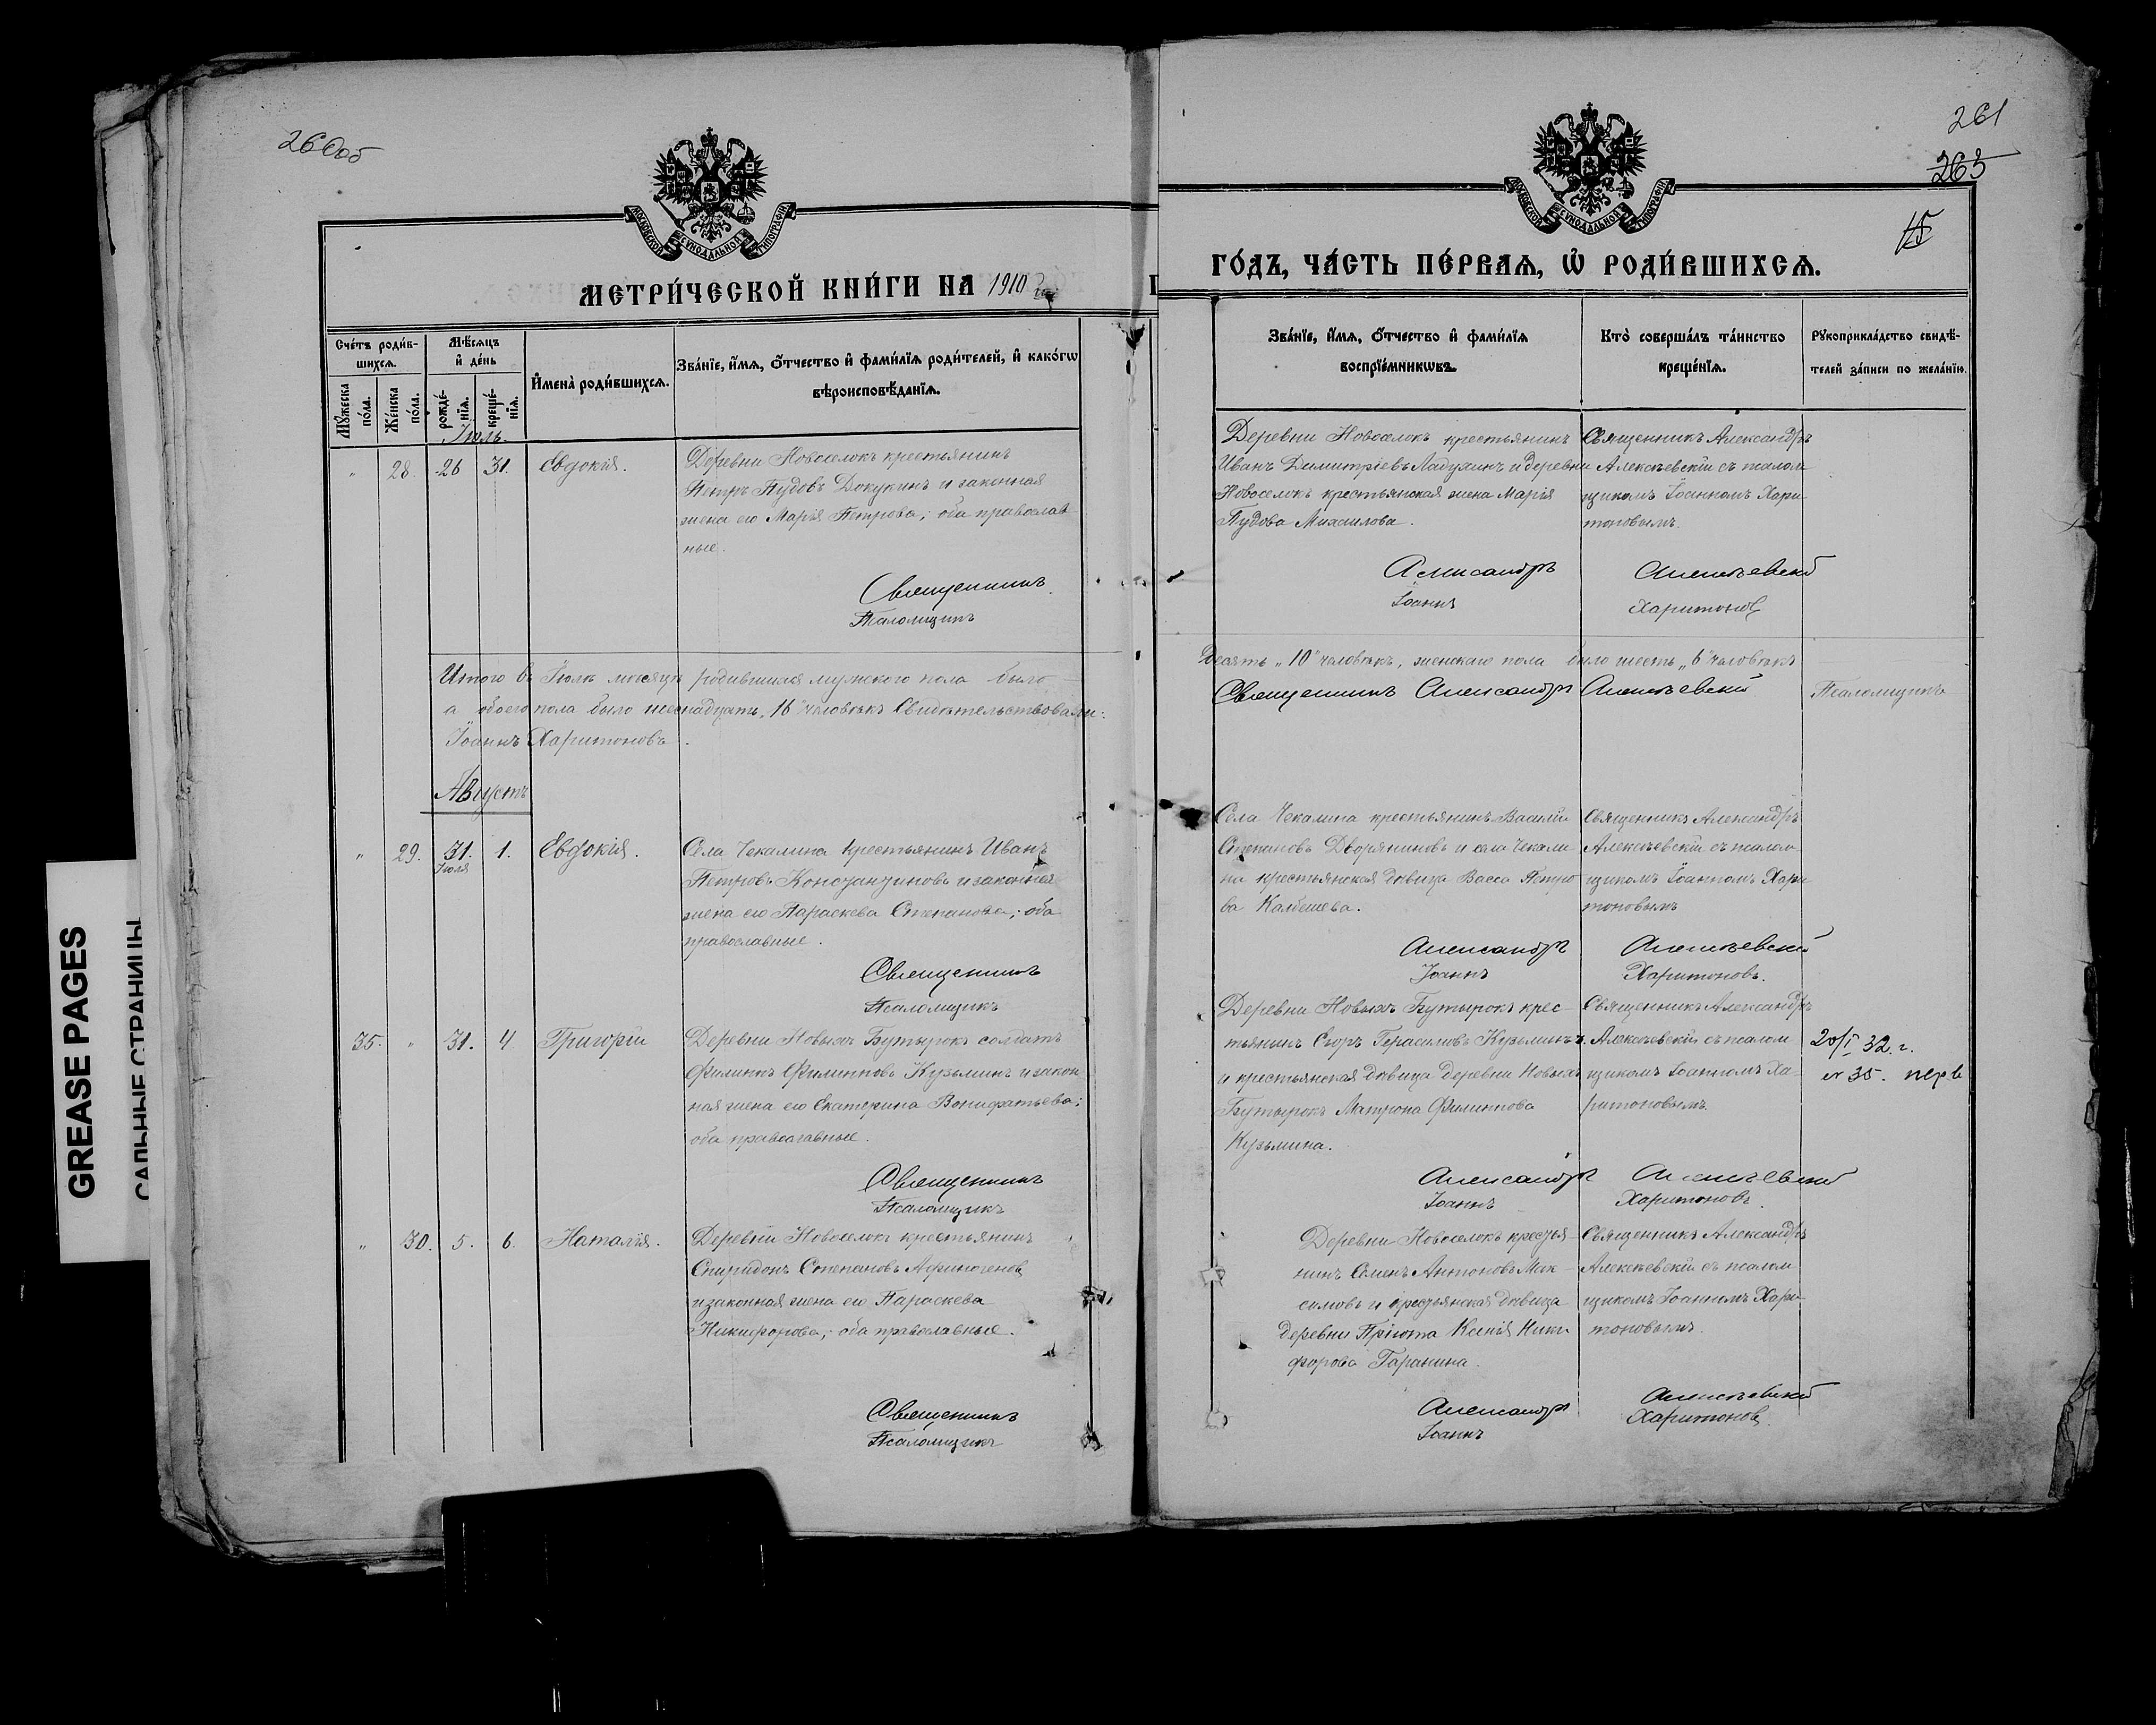 260об
МОСКОВСКОЙ СУНОДАЛЬНОЙ ТИПОГРАФІИ
МЕТРИ́ЧЕСКОЙ КНИ́ГИ НА 1910
Сче́тъ роди́в-
шихсѧ.
Мѣ́сѧцъ
и҆ де́нь
Му́жеска
по́ла.
Же́нска
по́ла.
рожде́-
нїѧ.
креще́-
нїѧ.
И҆мена̀ роди́вшихсѧ.
Зва́нїе, и҆́мѧ, ѻ҆́тчество и҆ фами́лїѧ роди́телей, и҆ како́гѡ
вѣроисповѣ́данїѧ.
Іюль.
" 28. 26 31. Евдокія.
Деревни Новоселокъ крестьянинъ
Петръ Пудовъ Докукинъ и законная
жена его Марія Петрова; оба православ
ные.
Священникъ
Псаломщикъ
Итого въ Іюлѣ мѣсяцѣ родившихся мужского пола было
а обоего пола было шеснадцать „16" человѣкъ Свидѣтельствовали:
Іоаннъ Харитоновъ.
Августъ
" 29. 31. Іюля 1. Евдокія.
Села Чекалина крестьянинъ Иванъ
Петровъ Константиновъ и законная
жена его Параскева Степанова; оба
православные.
Священникъ
Псаломщикъ
35. " 31. 4 Григорій
Деревни Новыхъ Бутырокъ солдатъ
Филиппъ Филипповъ Кузьминъ и закон
ная жена его Екатерина Вонифатьева;
оба православные.
Священникъ
Псаломщикъ
" 30. 5. 6. Наталія.
Деревни Новоселокъ крестьянинъ
Спиридонъ Степановъ Афиногеновъ
и законная жена его Параскева
Никифорова; оба православные.
Священникъ
Псаломщикъ
261
263
15
МОСКОВСКОЙ СУНОДАЛЬНОЙ ТИПОГРАФІИ
ГО́ДЪ, ЧА́СТЬ ПЕ́РВАѦ, Ѡ҆ РОДИ́ВШИХСѦ.
Зва́нїе, и҆́мѧ, ѻ҆́тчество и҆ фами́лїѧ
воспрїе́мникѡвъ.
Кто̀ соверша́лъ та́инство
креще́нїѧ.
Рукоприкла́дство свидѣ́-
телей за́писи по жела́нїю.
Деревни Новоселокъ крестьянинъ
Иванъ Димитріевъ Ладухинъ и деревни
Новоселокъ крестьянская жена Марія
Пудова Михаилова.
Священникъ Александръ
Алексѣевскій съ псалом
щикомъ Іоанномъ Хари
тоновымъ.
Александръ Алексѣевскій
Іоаннъ Харитоновъ
десять „10" человѣкъ, женскаго пола было шесть „6" человѣкъ
Священникъ Александръ Алексѣевскій Псаломщикъ
Села Чекалина крестьянинъ Василій
Степановъ Дворяниновъ и села Чекали
на крестьянская дѣвица Васса Петро
ва Калбешева.
Священникъ Александръ
Алексѣевскій съ псалом
щикомъ Іоанномъ Хари
тоновымъ
Александръ Алексѣевскій
Іоаннъ Харитоновъ.
Деревни Новыхъ Бутырокъ крес
тьянинъ Егоръ Герасимовъ Кузьминъ
и крестьянская дѣвица деревни Новыхъ
Бутырокъ Матрона Филиппова
Кузьмина.
Священникъ Александръ
Алексѣевскій съ псалом
щикомъ Іоанномъ Ха-
ритоновымъ.
20/I 32. г.
№ 35.
Александръ Алексѣевскій
Іоаннъ Харитоновъ.
Деревни Новоселокъ крестья-
нинъ Семенъ Антоновъ Мак-
симовъ и крестьянская дѣвица
деревни Пріюта Ксенія Ники
форова Гаранина.
Священникъ Александръ
Алексѣевскій съ псалом
щикомъ Іоанномъ Хари-
тоновымъ.
Александръ Алексѣевскій
Іоаннъ Харитоновъ.
GREASE PAGES
САЛЬНЫЕ СТРАНИЦЫ